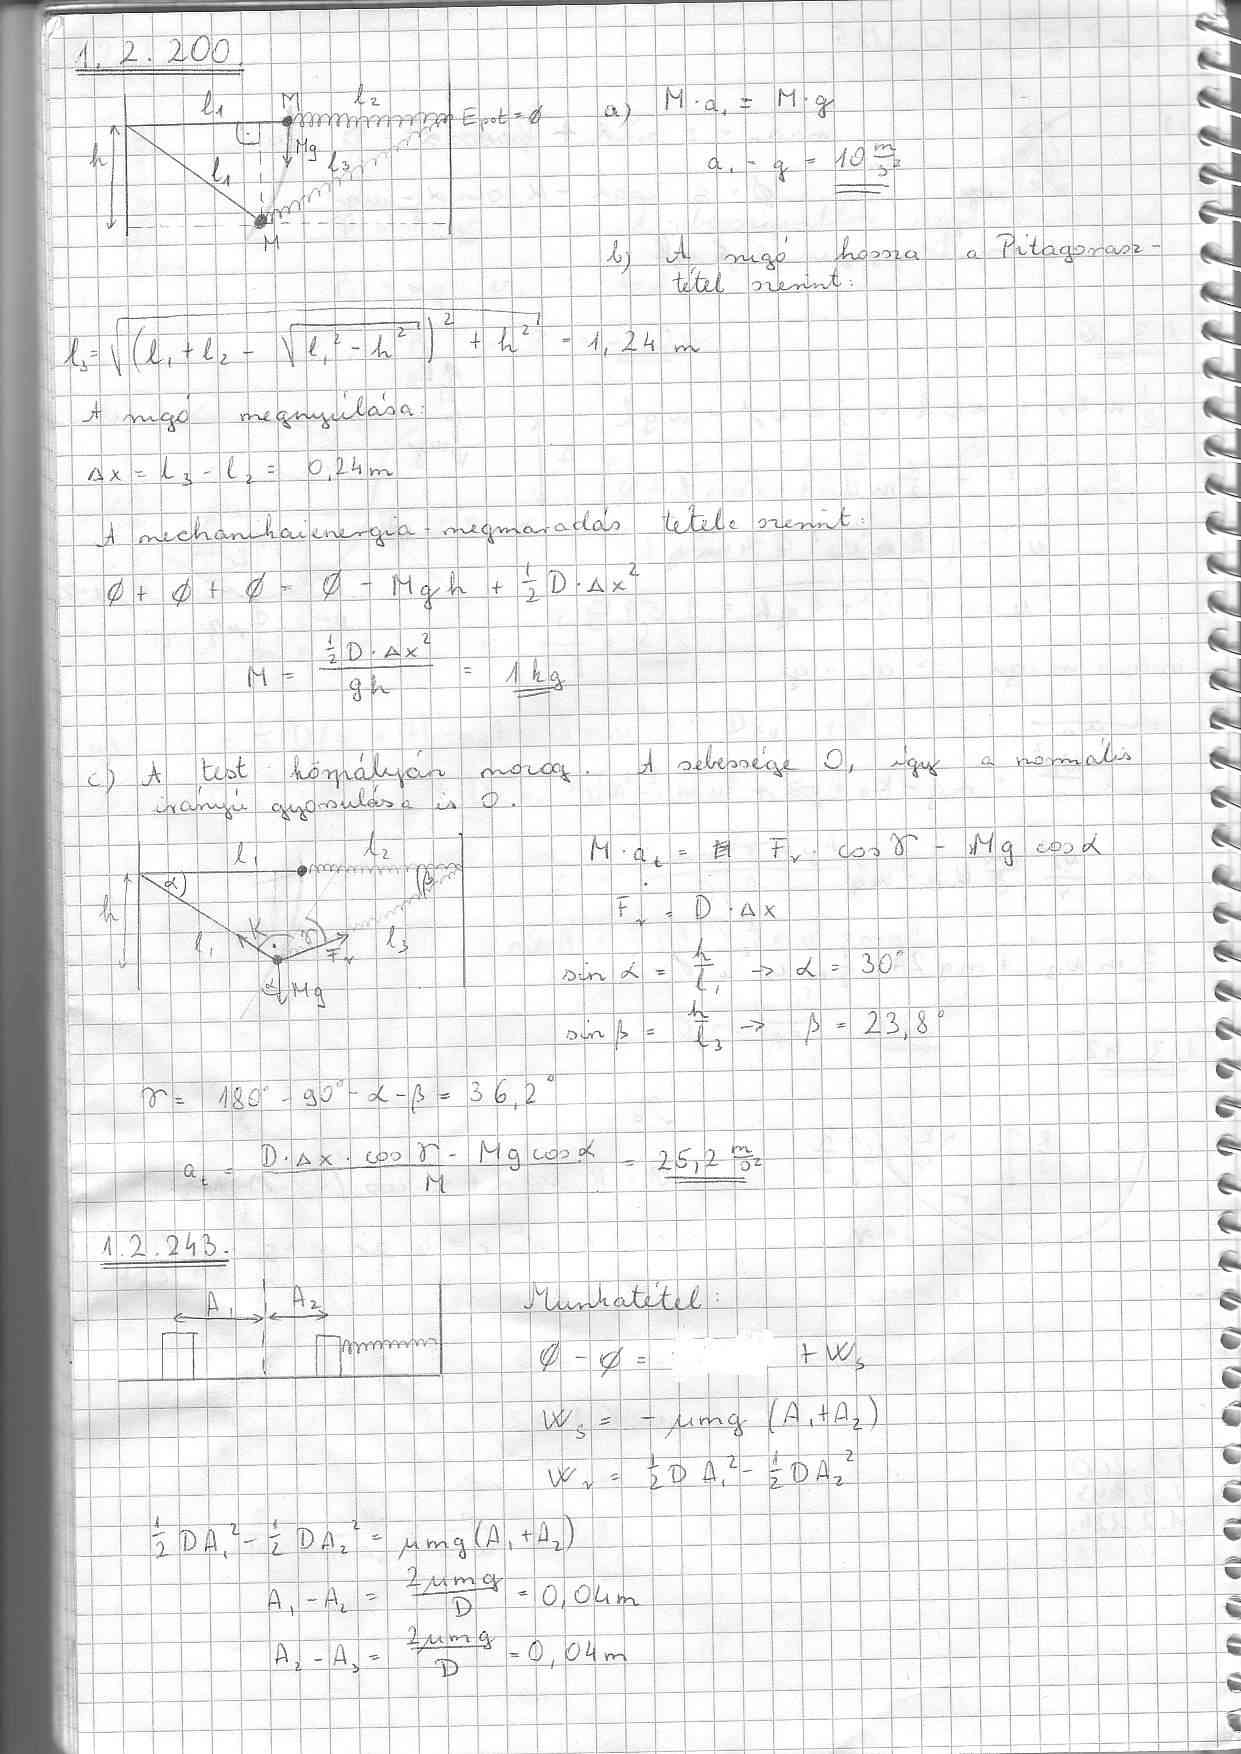 1. 2. 200.
l₁ M l₂ Epot = ∅
h l₁ Mg l₃
M
a) M·a₁ = M·g
a₁ = g = 10 m/s²
b) A rugó hossza a Pitagorasz-
tétel szerint:
l₃ = √((l₁ + l₂ - √(l₁² - h²))² + h²) = 1,24 m
A rugó megnyúlása:
Δx = l₃ - l₂ = 0,24 m
A mechanikaienergia-megmaradás tétele szerint:
∅ + ∅ + ∅ = ∅ - Mgh + ½ D·Δx²
M = ½ D·Δx² / gh = 1 kg
c) A test körpályán mozog. A sebessége 0, így a normális
irányú gyorsulása is 0.
l₁ l₂
α β
h l₁ K γ Fr l₃
α Mg
M·at = Fr · cos γ - Mg cos α
Fr = D·Δx
sin α = h/l₁ → α = 30°
sin β = h/l₃ → β = 23,8°
γ = 180° - 90° - α - β = 36,2°
at = D·Δx·cos γ - Mg cos α / M = 25,2 m/s²
1.2.243.
A₁ A₂
Munkatétel:
∅ - ∅ = + Ws
Ws = - μmg (A₁ + A₂)
Wr = ½ D A₁² - ½ D A₂²
½ D A₁² - ½ D A₂² = μmg (A₁ + A₂)
A₁ - A₂ = 2μmg / D = 0,04 m
A₂ - A₃ = 2μmg / D = 0,04 m